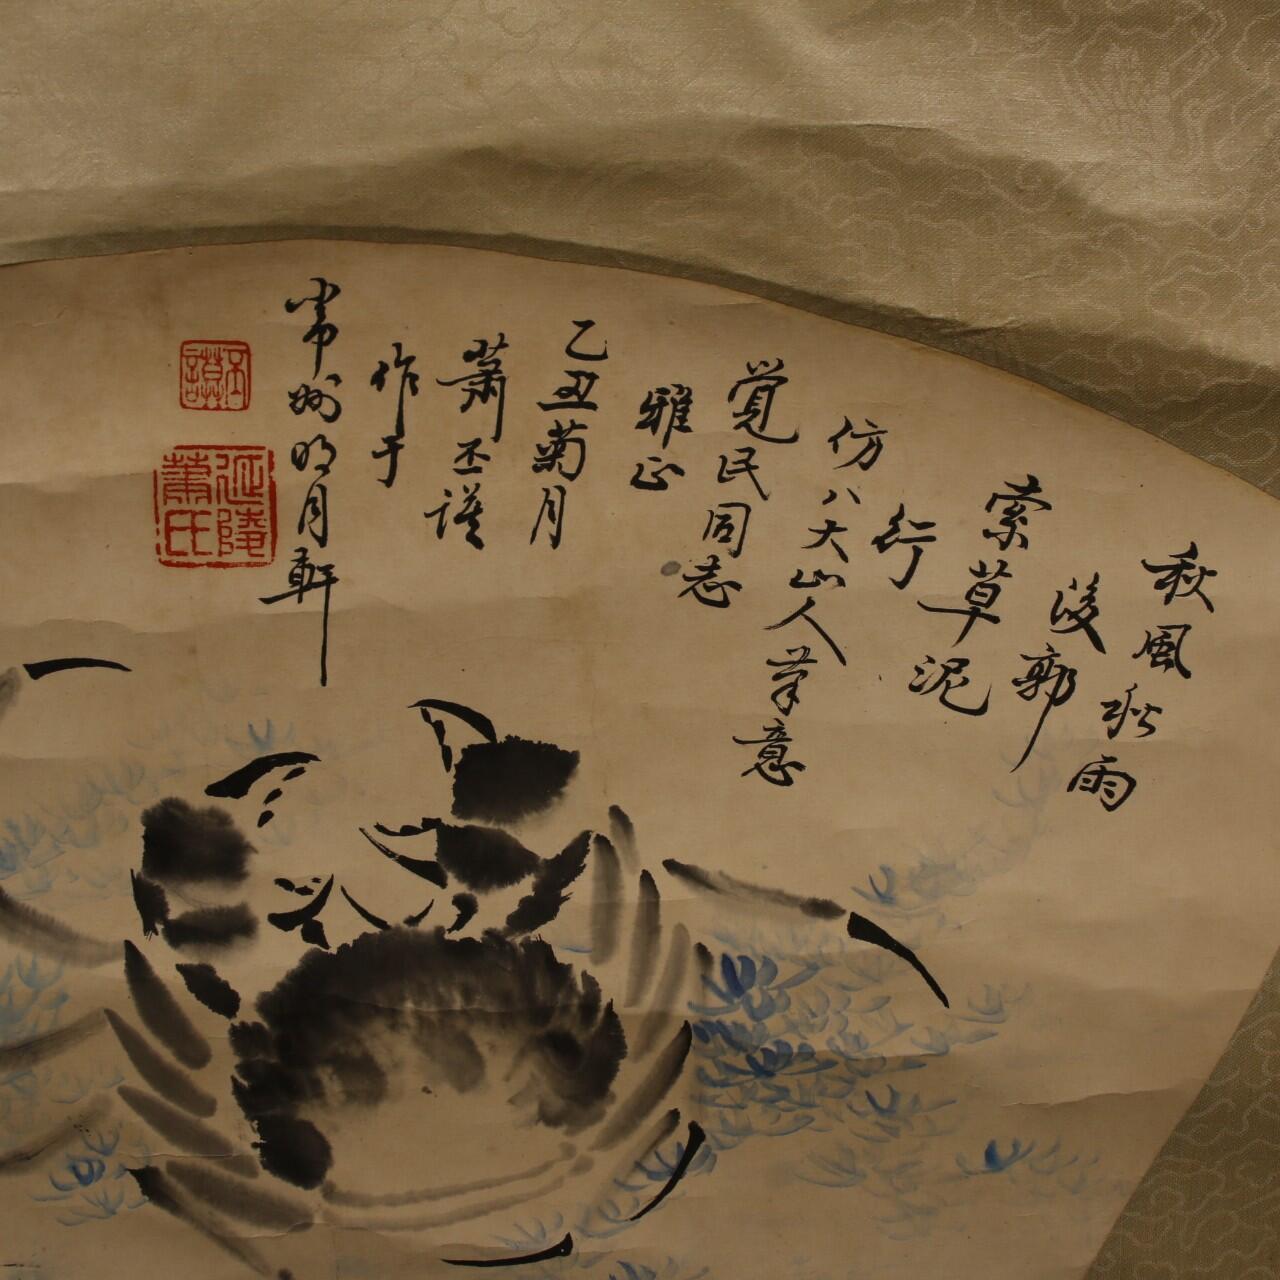 秋風秋雨
後郭
索草泥
行
仿八大山人筆意
覺民同志
雅正
乙丑菊月
蕭丕謨
作于
常州明月軒
丕謨
延陵蕭氏